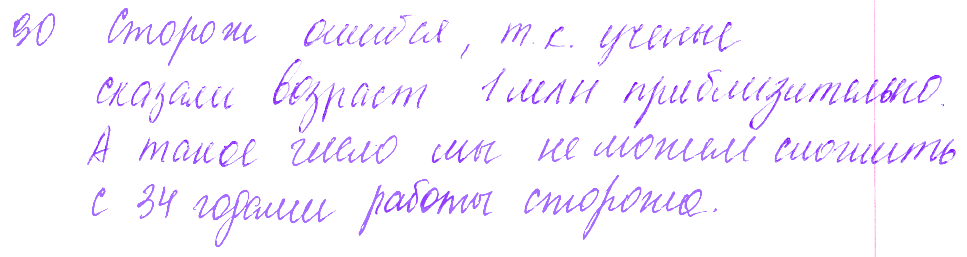 90 Сторож ошибся, т.к. ученые
сказали возраст 1 млн приблизительно.
А такое число мы не можем сложить
с 34 годами работы сторожа.